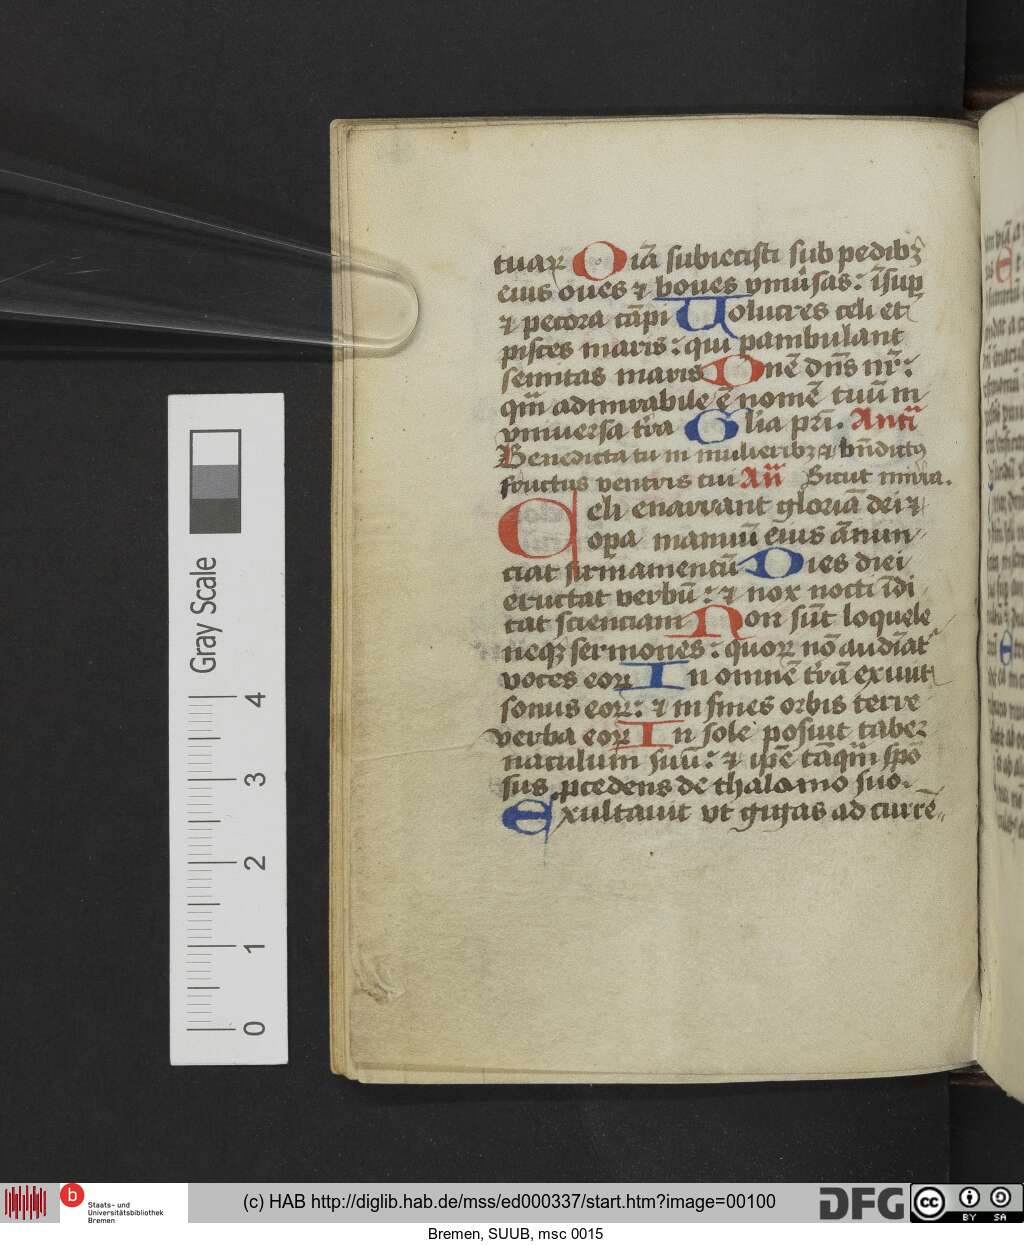 tuaꝝ Oīā subiecisti sub pedibꝫ
eius oues ⁊ boues vniūsas: īsuꝑ
⁊ pecora cāpi Uolucres celi et
pisces maris: qui pambulant
semitas maris Dnē dn̄s nr̄:
qm̄ admirabile ē nomē tuū in
vniuersa tr̄a Glīa pr̄i. Antī
Benedicta tu in mulieribꝫ ⁊ bn̄dictꝰ
fructus ventris tui An̄ Sicut mirra.
Celi enarrant gloriā dei ⁊
opa manuū eius ānun
ciat firmamentū Dies diei
eructat verbū: ⁊ nox nocti īdi
cat scientiam Non sūt loquele
neqꝫ sermones: quoꝝ nō audiāt
voces eoꝝ In omnē tr̄ā exiuit
sonus eoꝝ: ⁊ in fines orbis terre
verba eoꝝ In sole posuit taber
naculum suū: ⁊ ip̄e tāqm̄ spō
sus ꝓcedens de thalamo suo.
Exultauit vt gigas ad currē
Gray Scale
4
3
2
1
0
b
Staats- und
Universitätsbibliothek
Bremen
(c) HAB http://diglib.hab.de/mss/ed000337/start.htm?image=00100
DFG
cc
BY SA
Bremen, SUUB, msc 0015